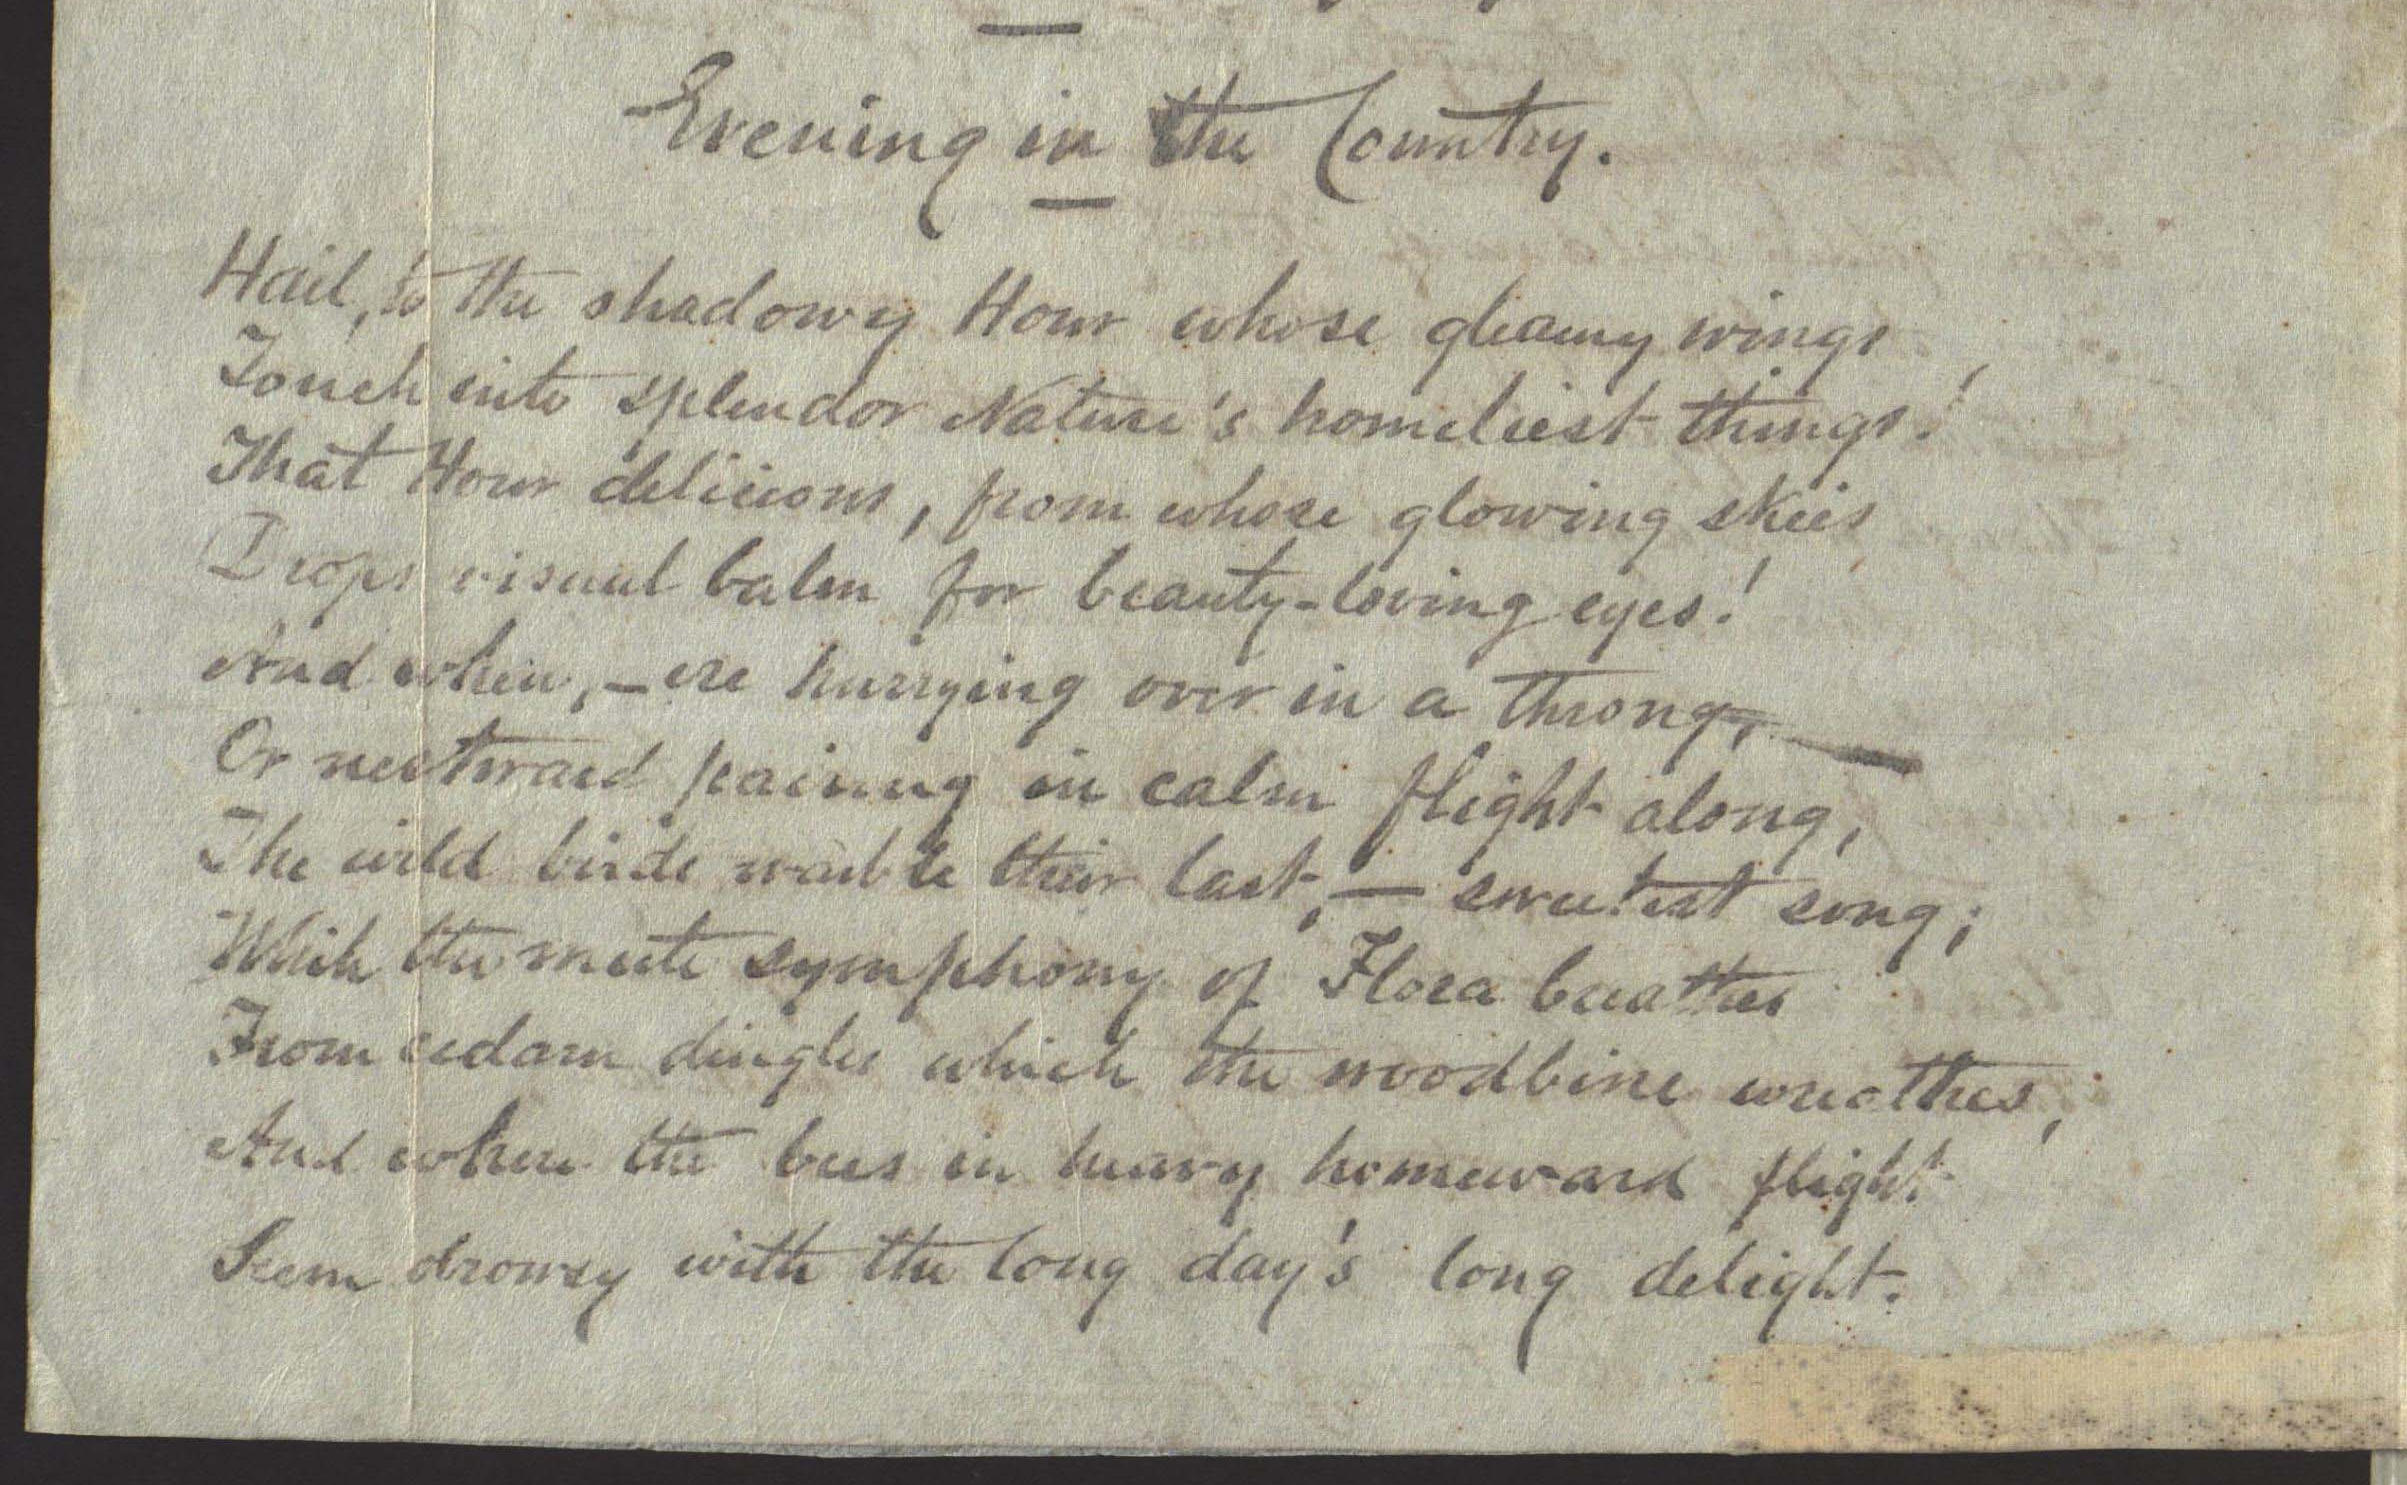 Evening in the Country.
Hail, to the shadowy Hour whose gleamy wings,
Touch into splendor Nature's homeliest things!
That Hour delicious, from whose glowing skies
Drops visual balm for beauty-loving eyes!
And when, – ere hurrying over in a throng, —
Or nestward pairing in calm flight along,
The wild birds warble their last, — sweetest song;
While the mute symphony of Flora breathes
From cedarn dingles which the woodbine wreathes,
And where the bees in heavy homeward flight
Seem drowsy with the long day's long delight.